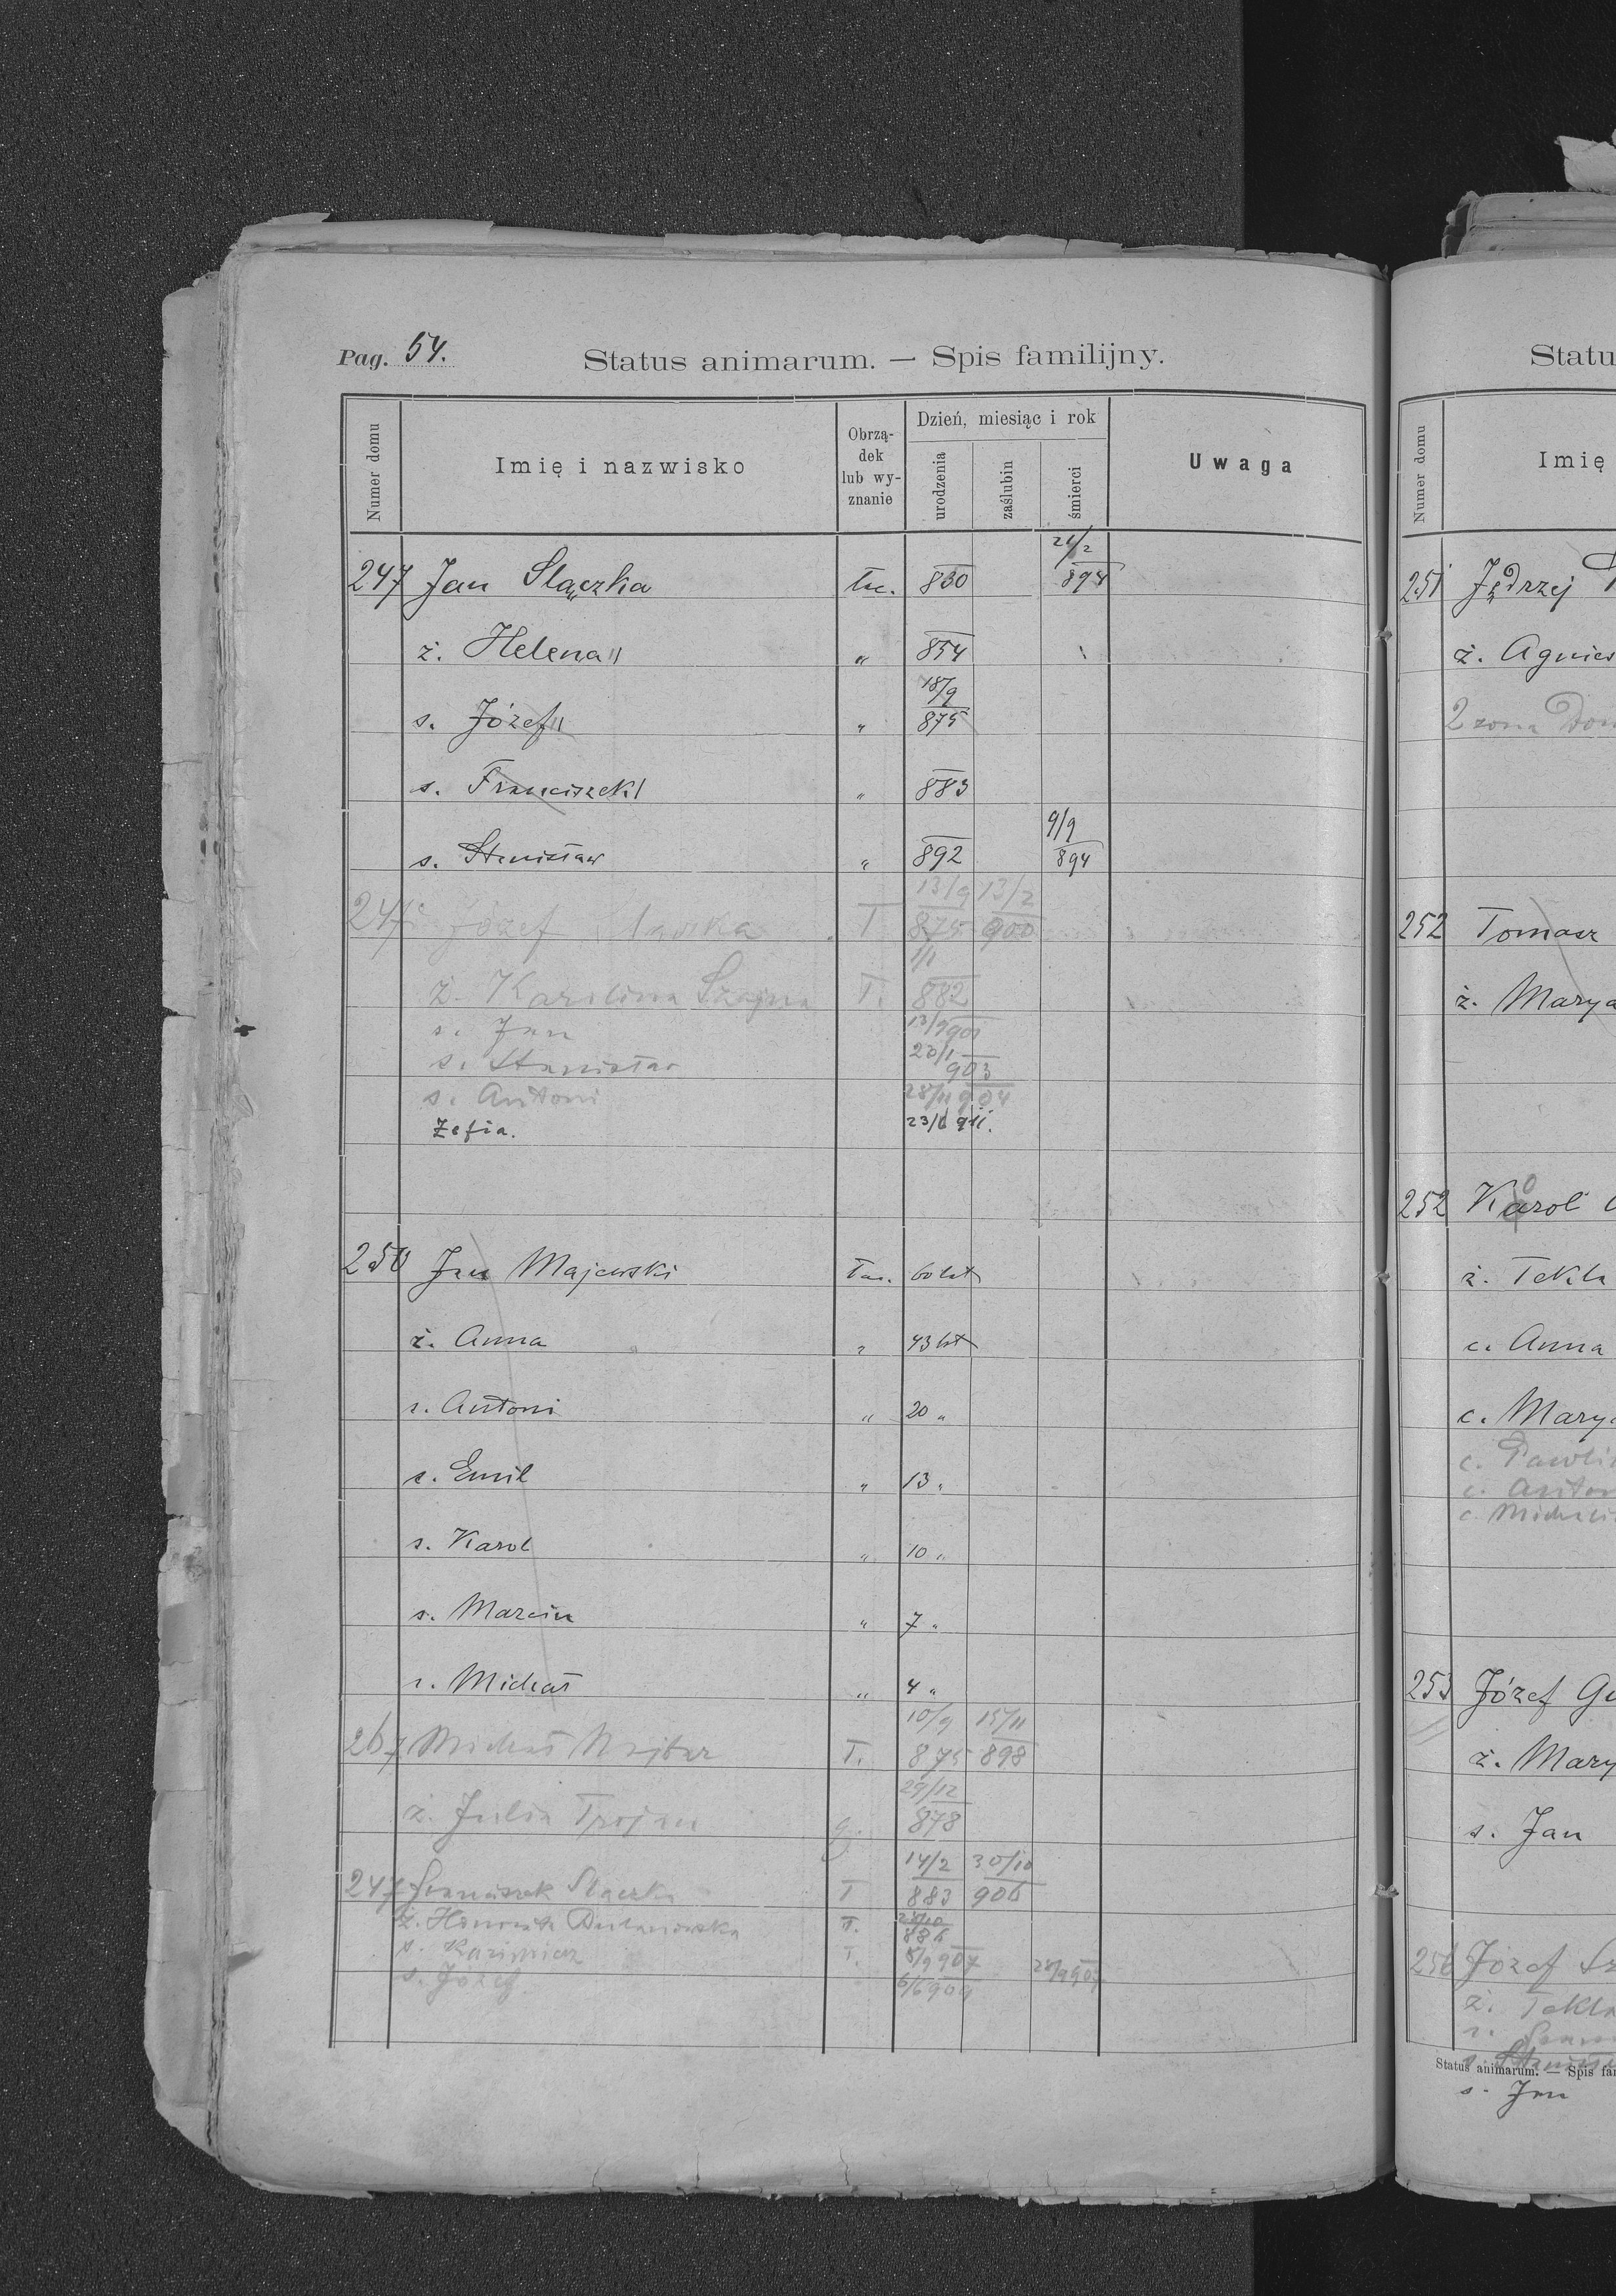 Pag. 54.
Status animarum. — Spis familijny.
Numer domu
Imię i nazwisko
Obrzą-
dek
lub wy-
znanie
Dzień, miesiąc i rok
urodzenia
zaślubin
śmierci
Uwaga
247 Jan Slączka łac. 830 21/2 894
ż. Helena " 854
s. Józef " 18/9 875
s. Franciszek " 883
s. Stanisław " 892 9/9 894
247 Józef Slączka T 13/9 875 13/2 900
ż. Karolina Szajna T. 1/1 882
s. Jan 13/3 901
s. Stanisław 20/1 903
s. Antoni 28/11 904
Zofia. 23/6 911.
250 Jan Majewski łac. 60 lat
ż. Anna " 43 lat
s. Antoni " 20 "
s. Emil " 13 "
s. Karol " 10 "
s. Marcin " 7 "
s. Michał " 4 "
267 Michał T. 10/9 875 15/11 898
ż. Julia Trojan g. 29/12 878
247 Franciszek Slączka T 14/2 883 30/10 906
ż. T. 886
s. Kazimierz T. 5/9 907
s. Józef 6/6 909
Statu
Numer domu
Imię
251 Jędrzej
ż. Agnies
2 żona Dom
252 Tomasz
ż. Marya
252 Karol
ż. Tekla
c. Anna
c. Mary
c. Pawli
c. Anton
c. Michali
253 Józef
ż. Mary
s. Jan
256 Józef
ż. Tekla
s. Stanisł
Status animarum. — Spis fa
s. Jan